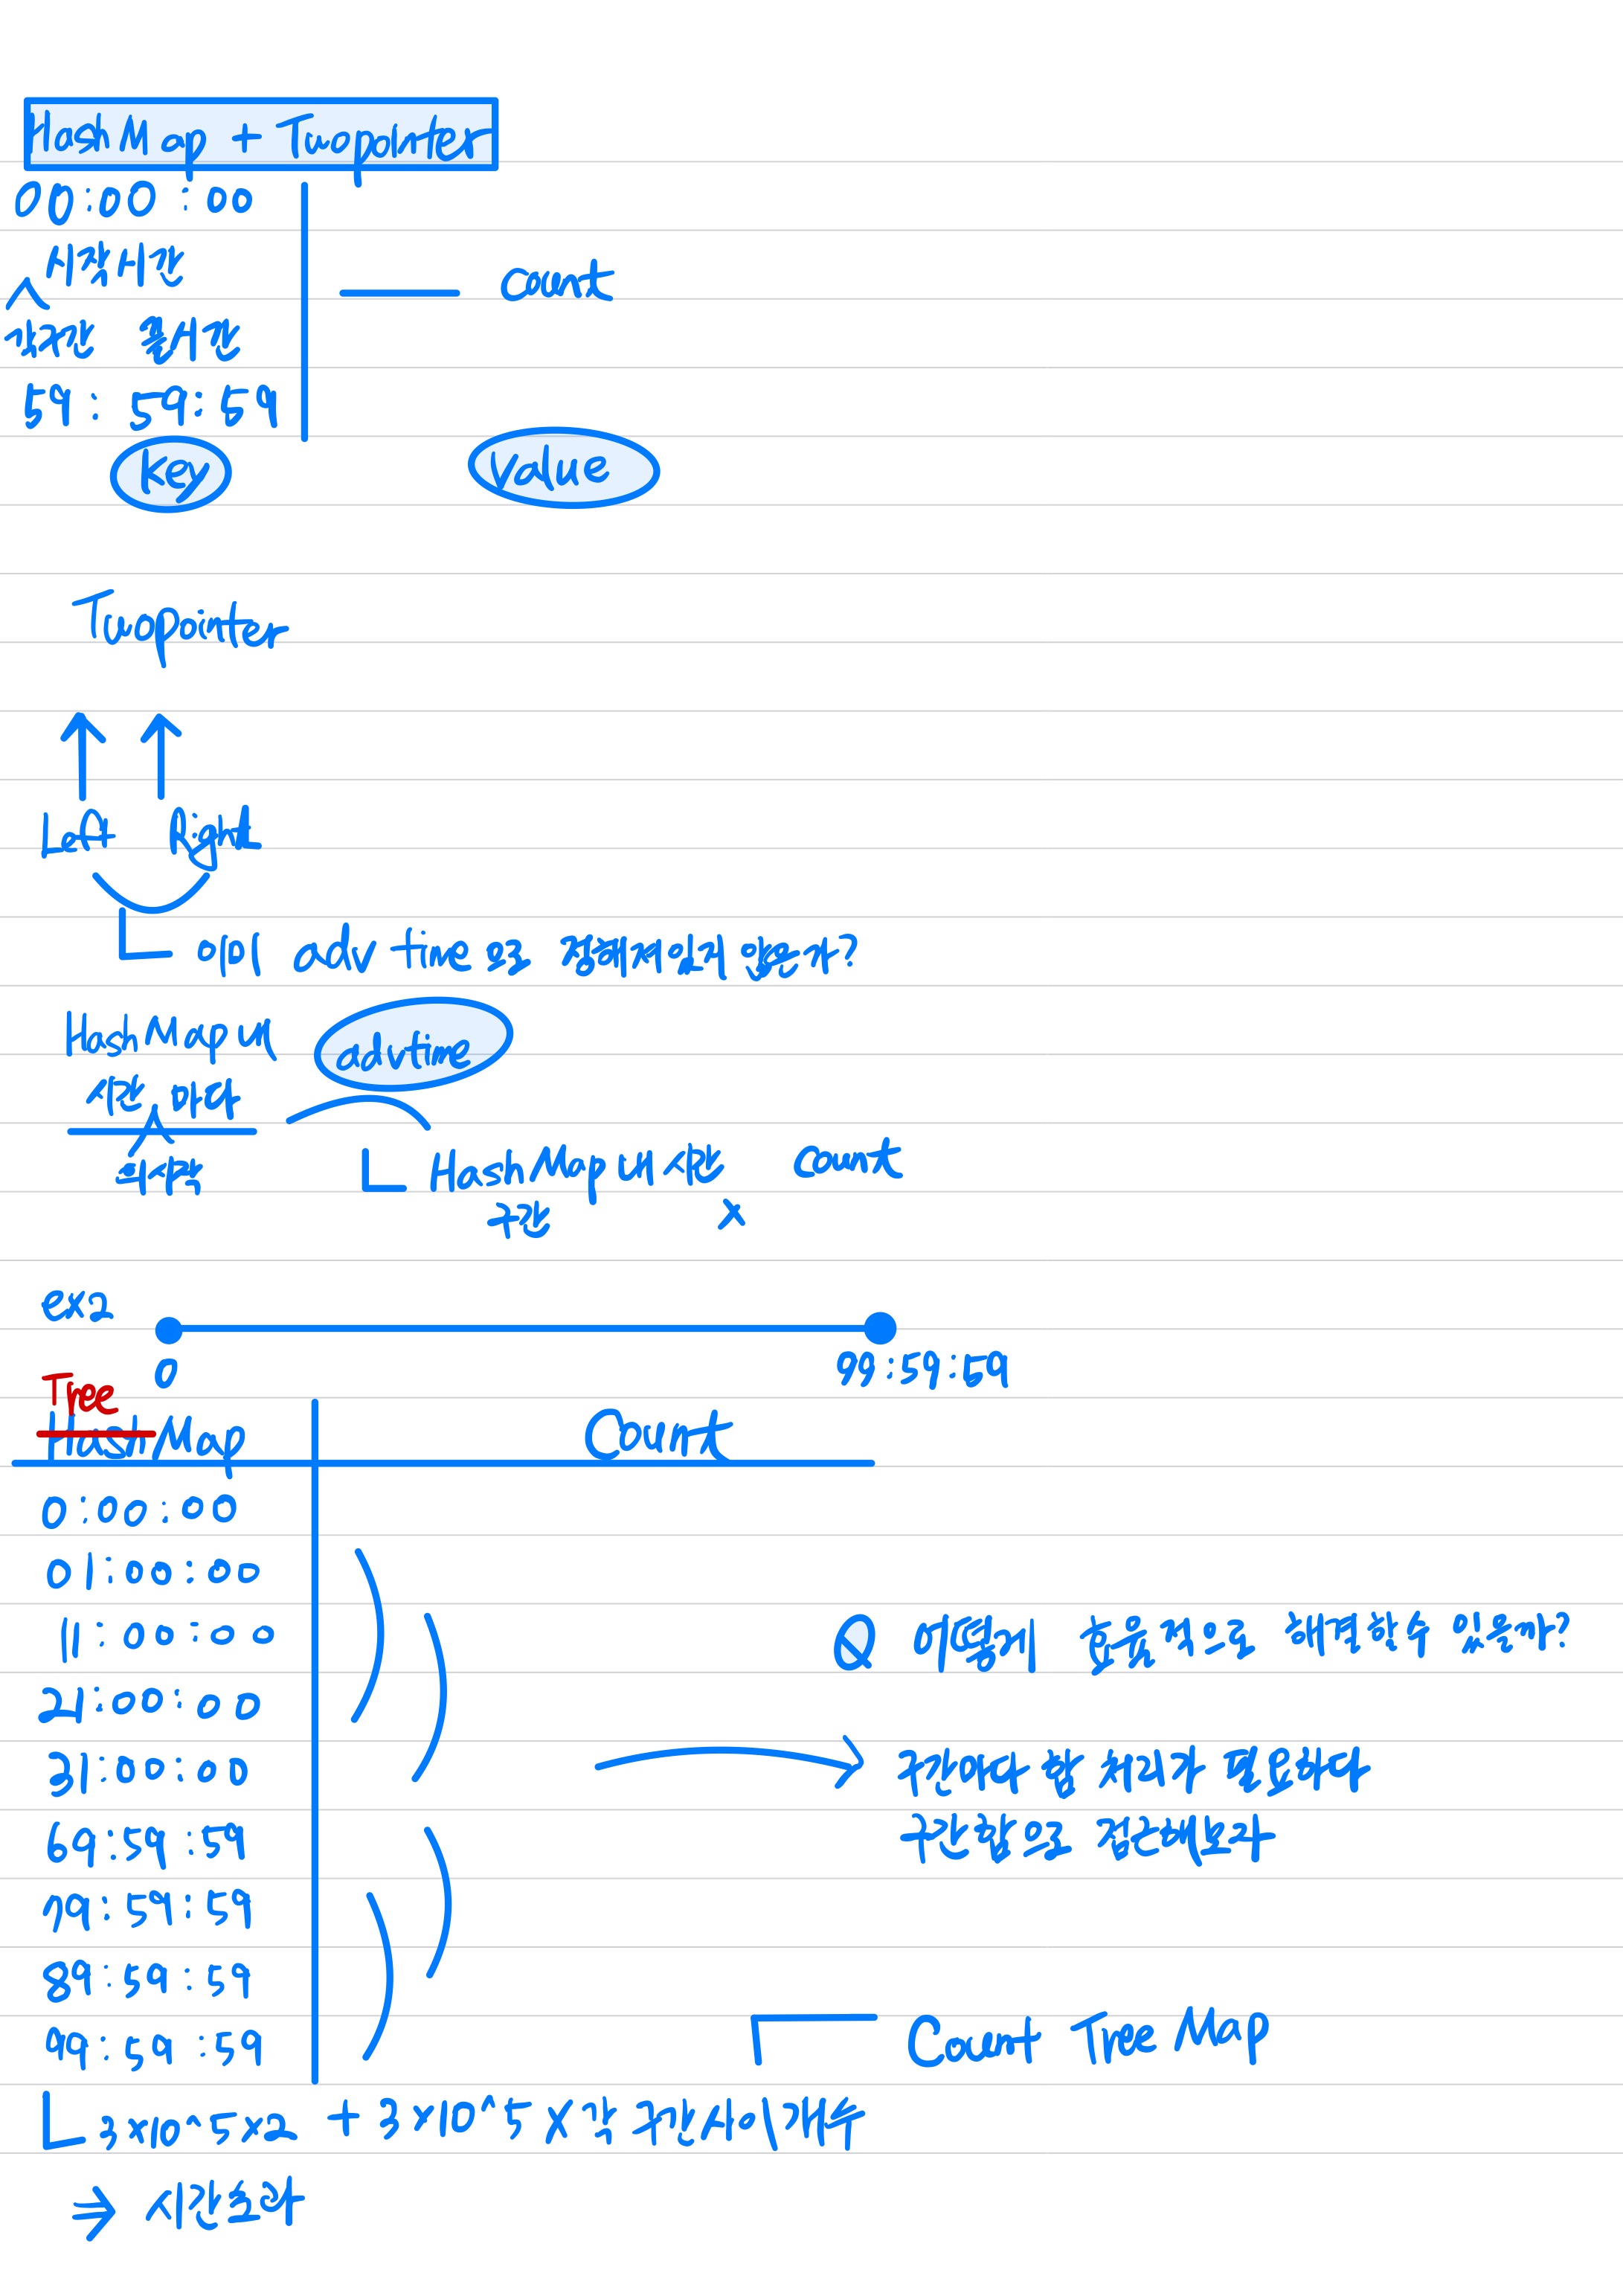 HashMap + Twopointer
00:00:00
시작시간
count
끝시간
59:59:59
Key
Value
Twopointer
Left Right
이미 adv time은 정해져있지 않은가?
HashMap 내
시간 마다
adv time
HashMap 내 시작 count
구간 x
ex2
0
99:59:59
Tree
Hash Map
Count
0:00:00
01:00:00
11:00:00
Q 어떻게 효율적으로 해결할 수 있을까?
21:00:00
31:00:00
구간마다 합 처리가 필요하다
69:59:59
구간합으로 접근해보라
79:59:59
89:59:59
99:59:59
Count Tree Map
3x10^5x2 + 3x10^5 x 각 구간 사이 개수
⇒ 시간초과